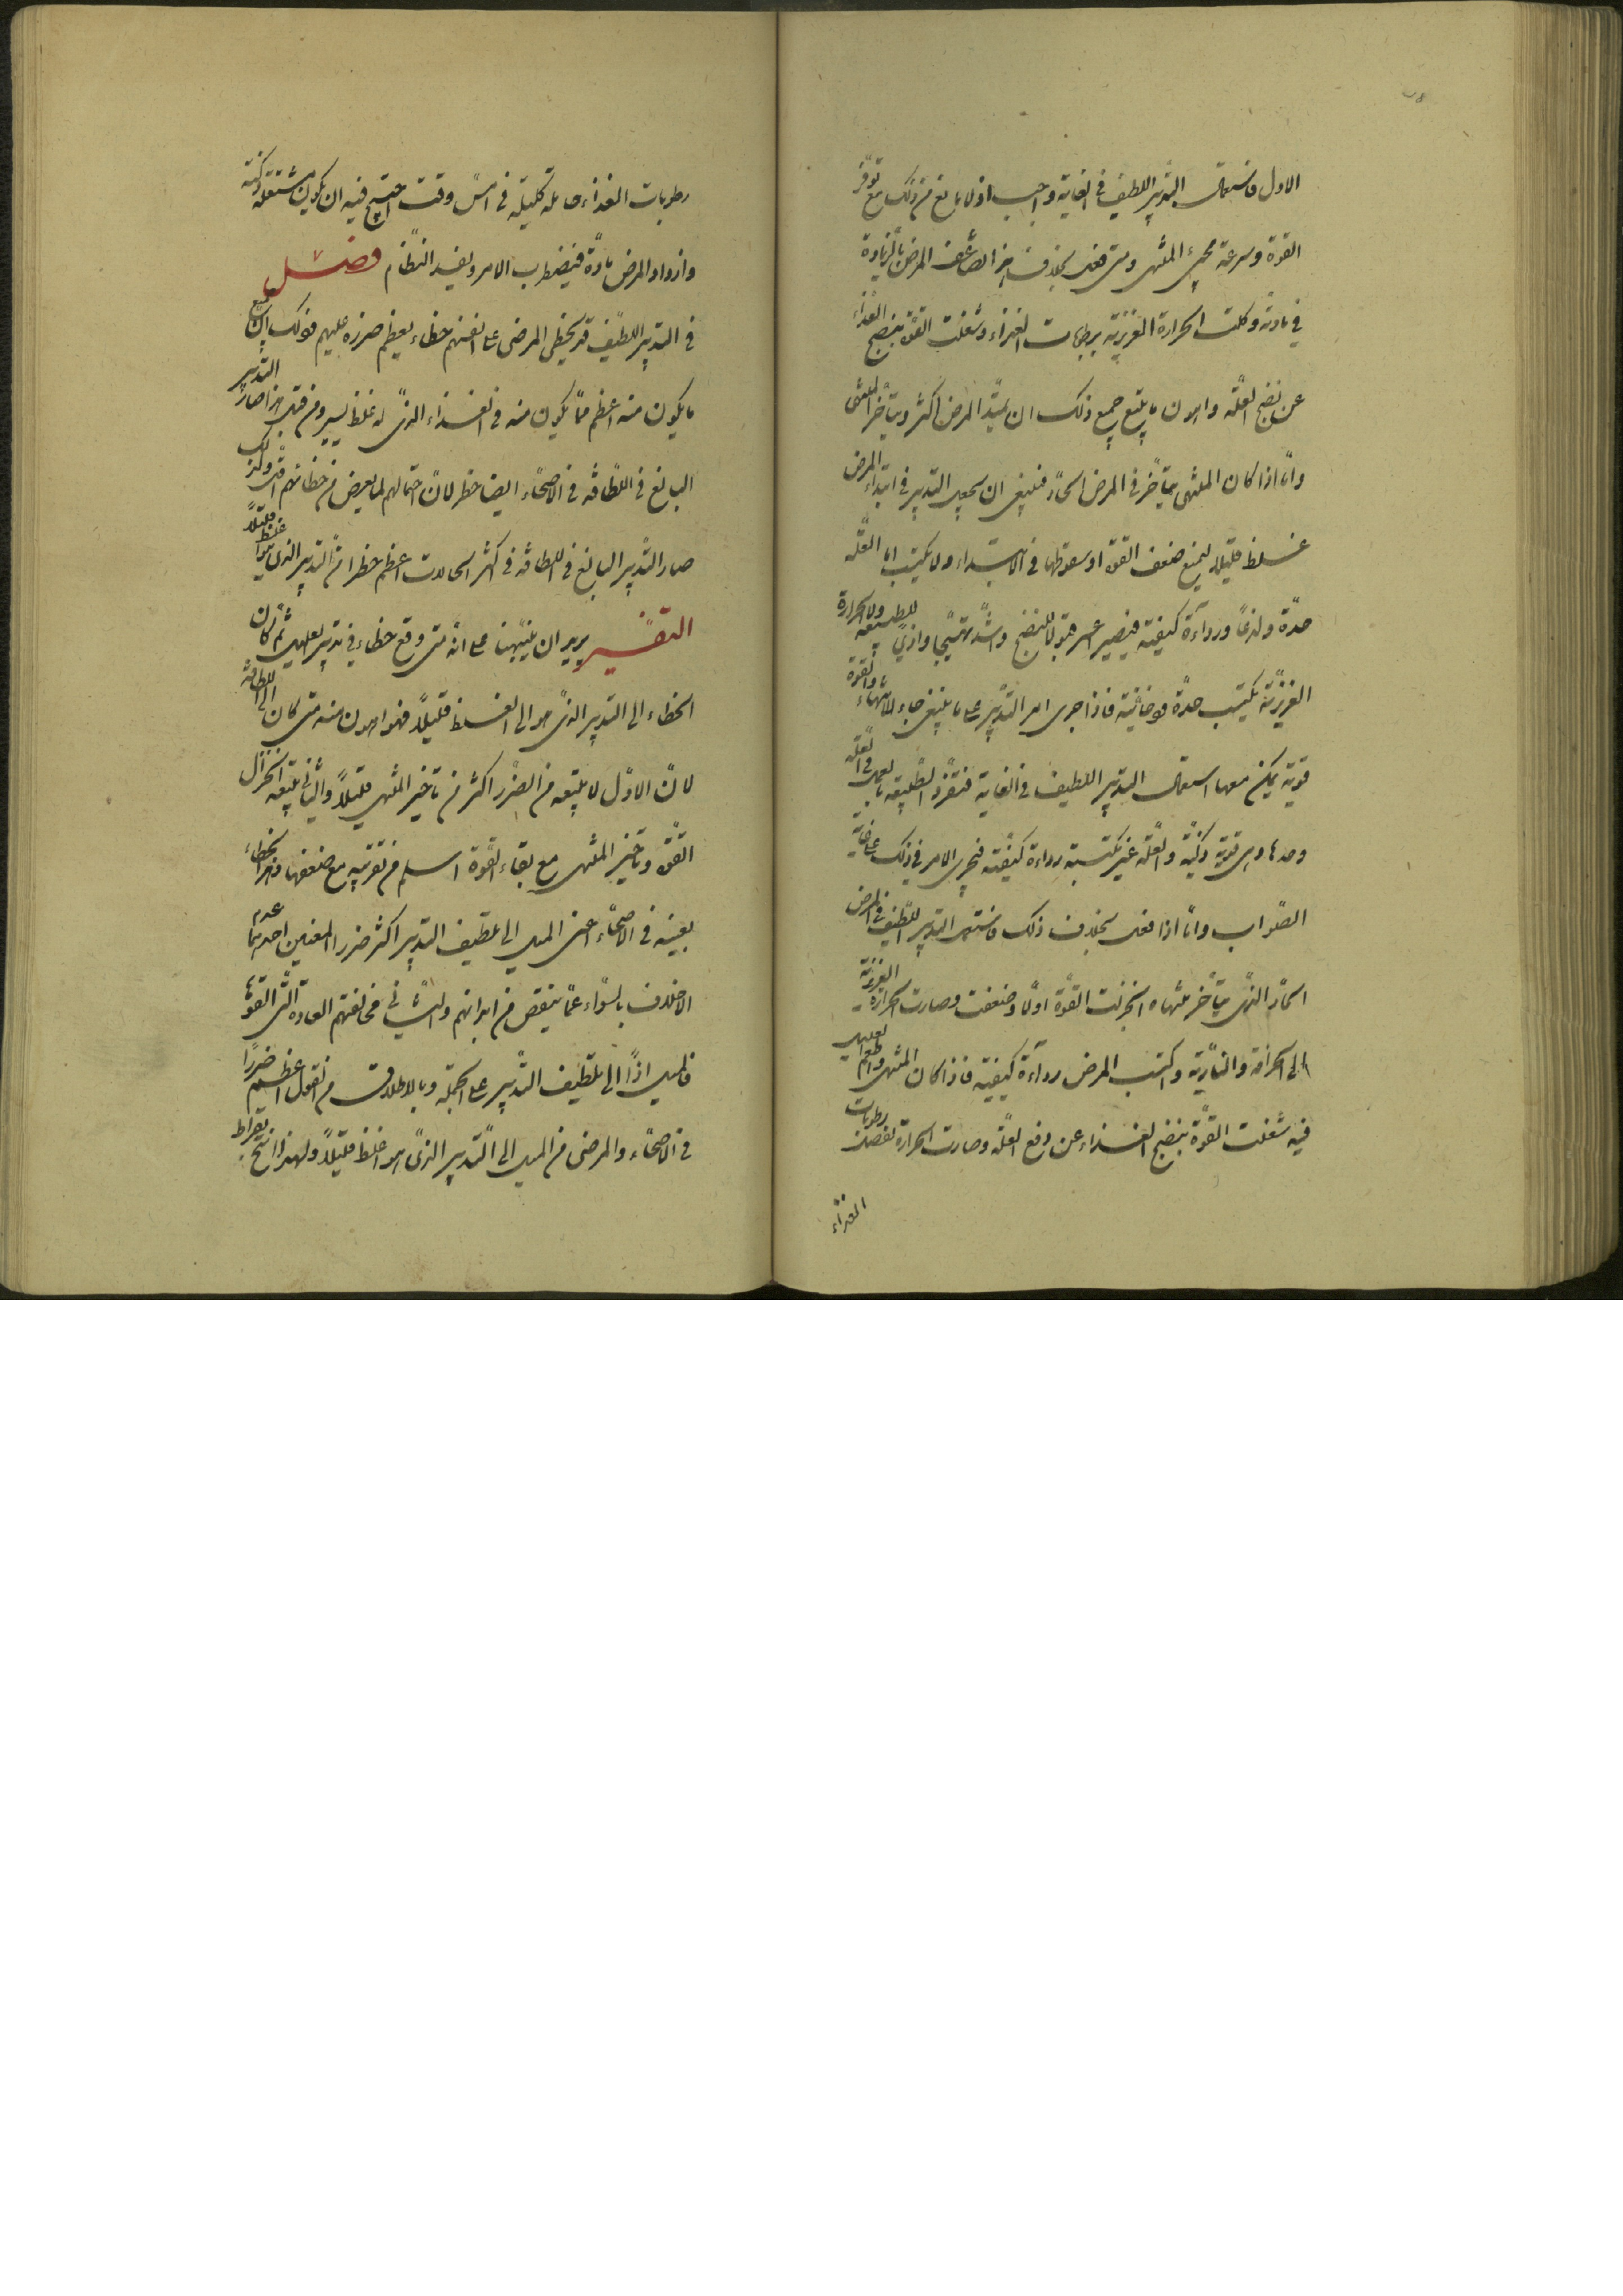 الاول فاستعمال التدبير اللطيف فى الغاية واجب اذ لا مانع من ذلك مع توفر
القوة وسرعة مجئ المنتهى ومتى فعل بخلاف هذا ضاعف المرض بالزيادة
فى مادته وكلت الحرارة الغريزية برطوبات الغذاء وشغلت القوة بنضج الغذاء
عن نضج العلة واهون ما يتبع جميع ذلك ان يمتد المرض اكثر ويتأخر المنتهى
واما اذا كان المنتهى يتأخر فى المرض الحاد فينبغى ان يجعل التدبير فى ابتداء المرض
اغلظ قليلا ليمنع ضعف القوة او سقوطها فى الابتداء ولا يكتسب العلة
حدة ولذعا ورداءة كيفية فيصير عسر قبولا للنضج واشد تهييجا واذى للطبيعة ولا الحرارة
الغريزية يكتسب حدة فاذا جرى امر التدبير على ما ينبغى جاء المنتهى والقوة
قوية يمكن معها استعمال التدبير اللطيف فى الغاية فتنفرد الطبيعة بالعمل فى العلة
وحدها وهى قوية ذكية والعلة غير مكتسبة رداءة كيفية فيجرى الامر فى ذلك على غاية
الصواب واما اذا فعل بخلاف ذلك فاستعمل التدبير اللطيف فى المرض
الحاد الذى يتأخر منتهاه انخزلت القوة اولا وضعفت وصارت الحرارة الغريزية
الى الحرافة والنارية واكتسب المرض رداءة كيفية فاذا كان المنتهى واطعم العليل
فيه شغلت القوة بنضج الغذاء عن دفع العلة وصارت الحرارة لفضل رطوبات
الغذاء
رطوبات الغذاء كليلة فى امس وقت احتيج فيه ان يكون مشتعلة ذكية
وازداد المرض مادة فيضطرب الامر ويفسد النظام فصل
فى التدبير اللطيف قد يخطى المرضى على انفسهم خطاء يعظم ضرره عليهم وذلك ان جميع
ما يكون منه اعظم مما يكون منه فى الغذاء الذى له غلظ يسير ومن قبل هذا صار التدبير
البالغ فى اللطافة فى الاصحاء ايضا خطر لان احتمالهم لما يعرض من خطائهم اقل ولذلك
صار التدبير البالغ فى اللطافة فى اكثر الحالات اعظم خطرا من التدبير الذى هو اغلظ قليلا
التفسير يريد ان ينبهنا على انه متى وقع خطاء فى تدبير العليل ثم كان
الخطاء الى التدبير الذى هو الى الغلظ قليلا فهو اهون منه متى كان الى اللطافة
لان الاول لا يتبعه من الضرر اكثر من تأخير المنتهى قليلا والثانى يتبعه انخزال
القوة وتأخير المنتهى مع بقاء القوة اسلم من تقريبه مع ضعفها وهذا الخطاء
بعينه فى الاصحاء اعنى الميل الى تلطيف التدبير اكثر ضررا لمعنيين احدهما عدم
الاخلاف بالسواء عما ينقص من ابدانهم والثانى مخالفتهم العادة التى القوها
فالميل اذا الى تلطيف التدبير على الجملة وبالاطلاق من القول اعظم ضررا
فى الاصحاء والمرضى من الميل الى التدبير الذى هو اغلظ قليلا ولهذا انتج بقراط